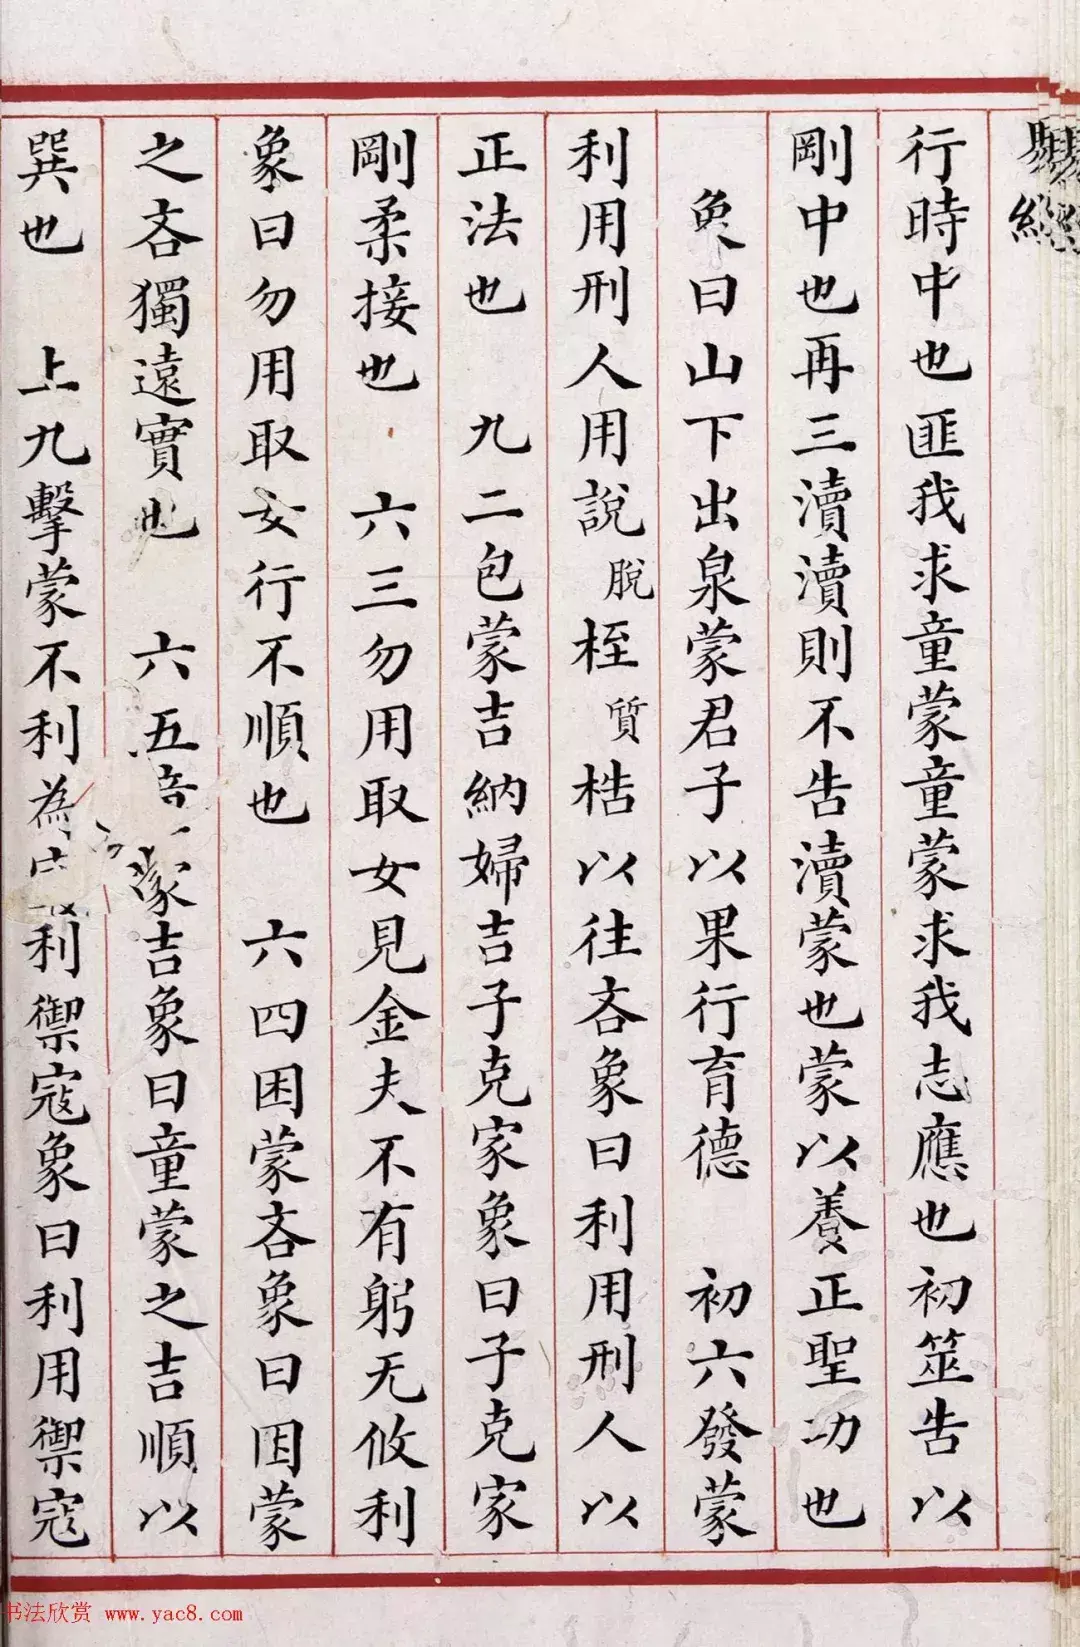 行時中也匪我求童蒙童蒙求我志應也初筮告以
剛中也再三瀆瀆則不告瀆蒙也蒙以養正聖功也
象曰山下出泉蒙君子以果行育德　初六發蒙
利用刑人用說脫桎質梏以往吝象曰利用刑人以
正法也　九二包蒙吉納婦吉子克家象曰子克家
剛柔接也　六三勿用取女見金夫不有躬无攸利
象曰勿用取女行不順也　六四困蒙吝象曰困蒙
之吝獨遠實也　六五蒙吉象曰童蒙之吉順以
巽也　上九擊蒙不利為利禦寇象曰利用禦寇
书法欣赏 www.yac8.com